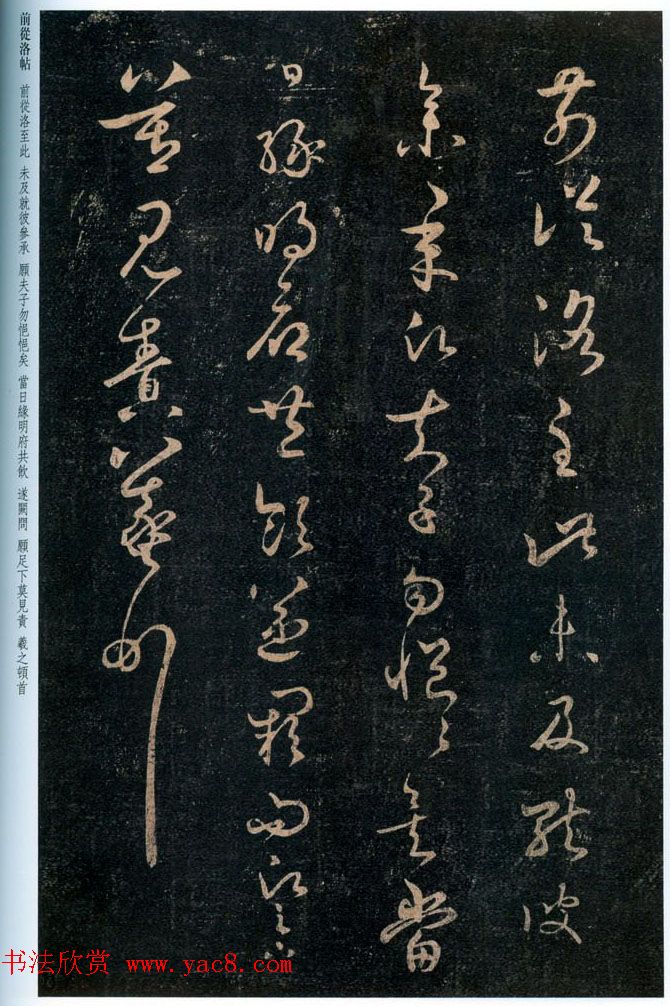 前從洛至此未及就彼
參承願夫子勿悒悒矣當
日緣明府共飲遂闕問願足下
莫見責羲之頓首
前從洛帖 前從洛至此 未及就彼參承 願夫子勿悒悒矣 當日緣明府共飲 遂闕問 願足下莫見責 羲之頓首
书法欣赏 www.yac8.com